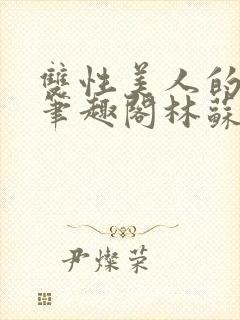 雙性美人的
筆趣閣林蘇
尹燦荣